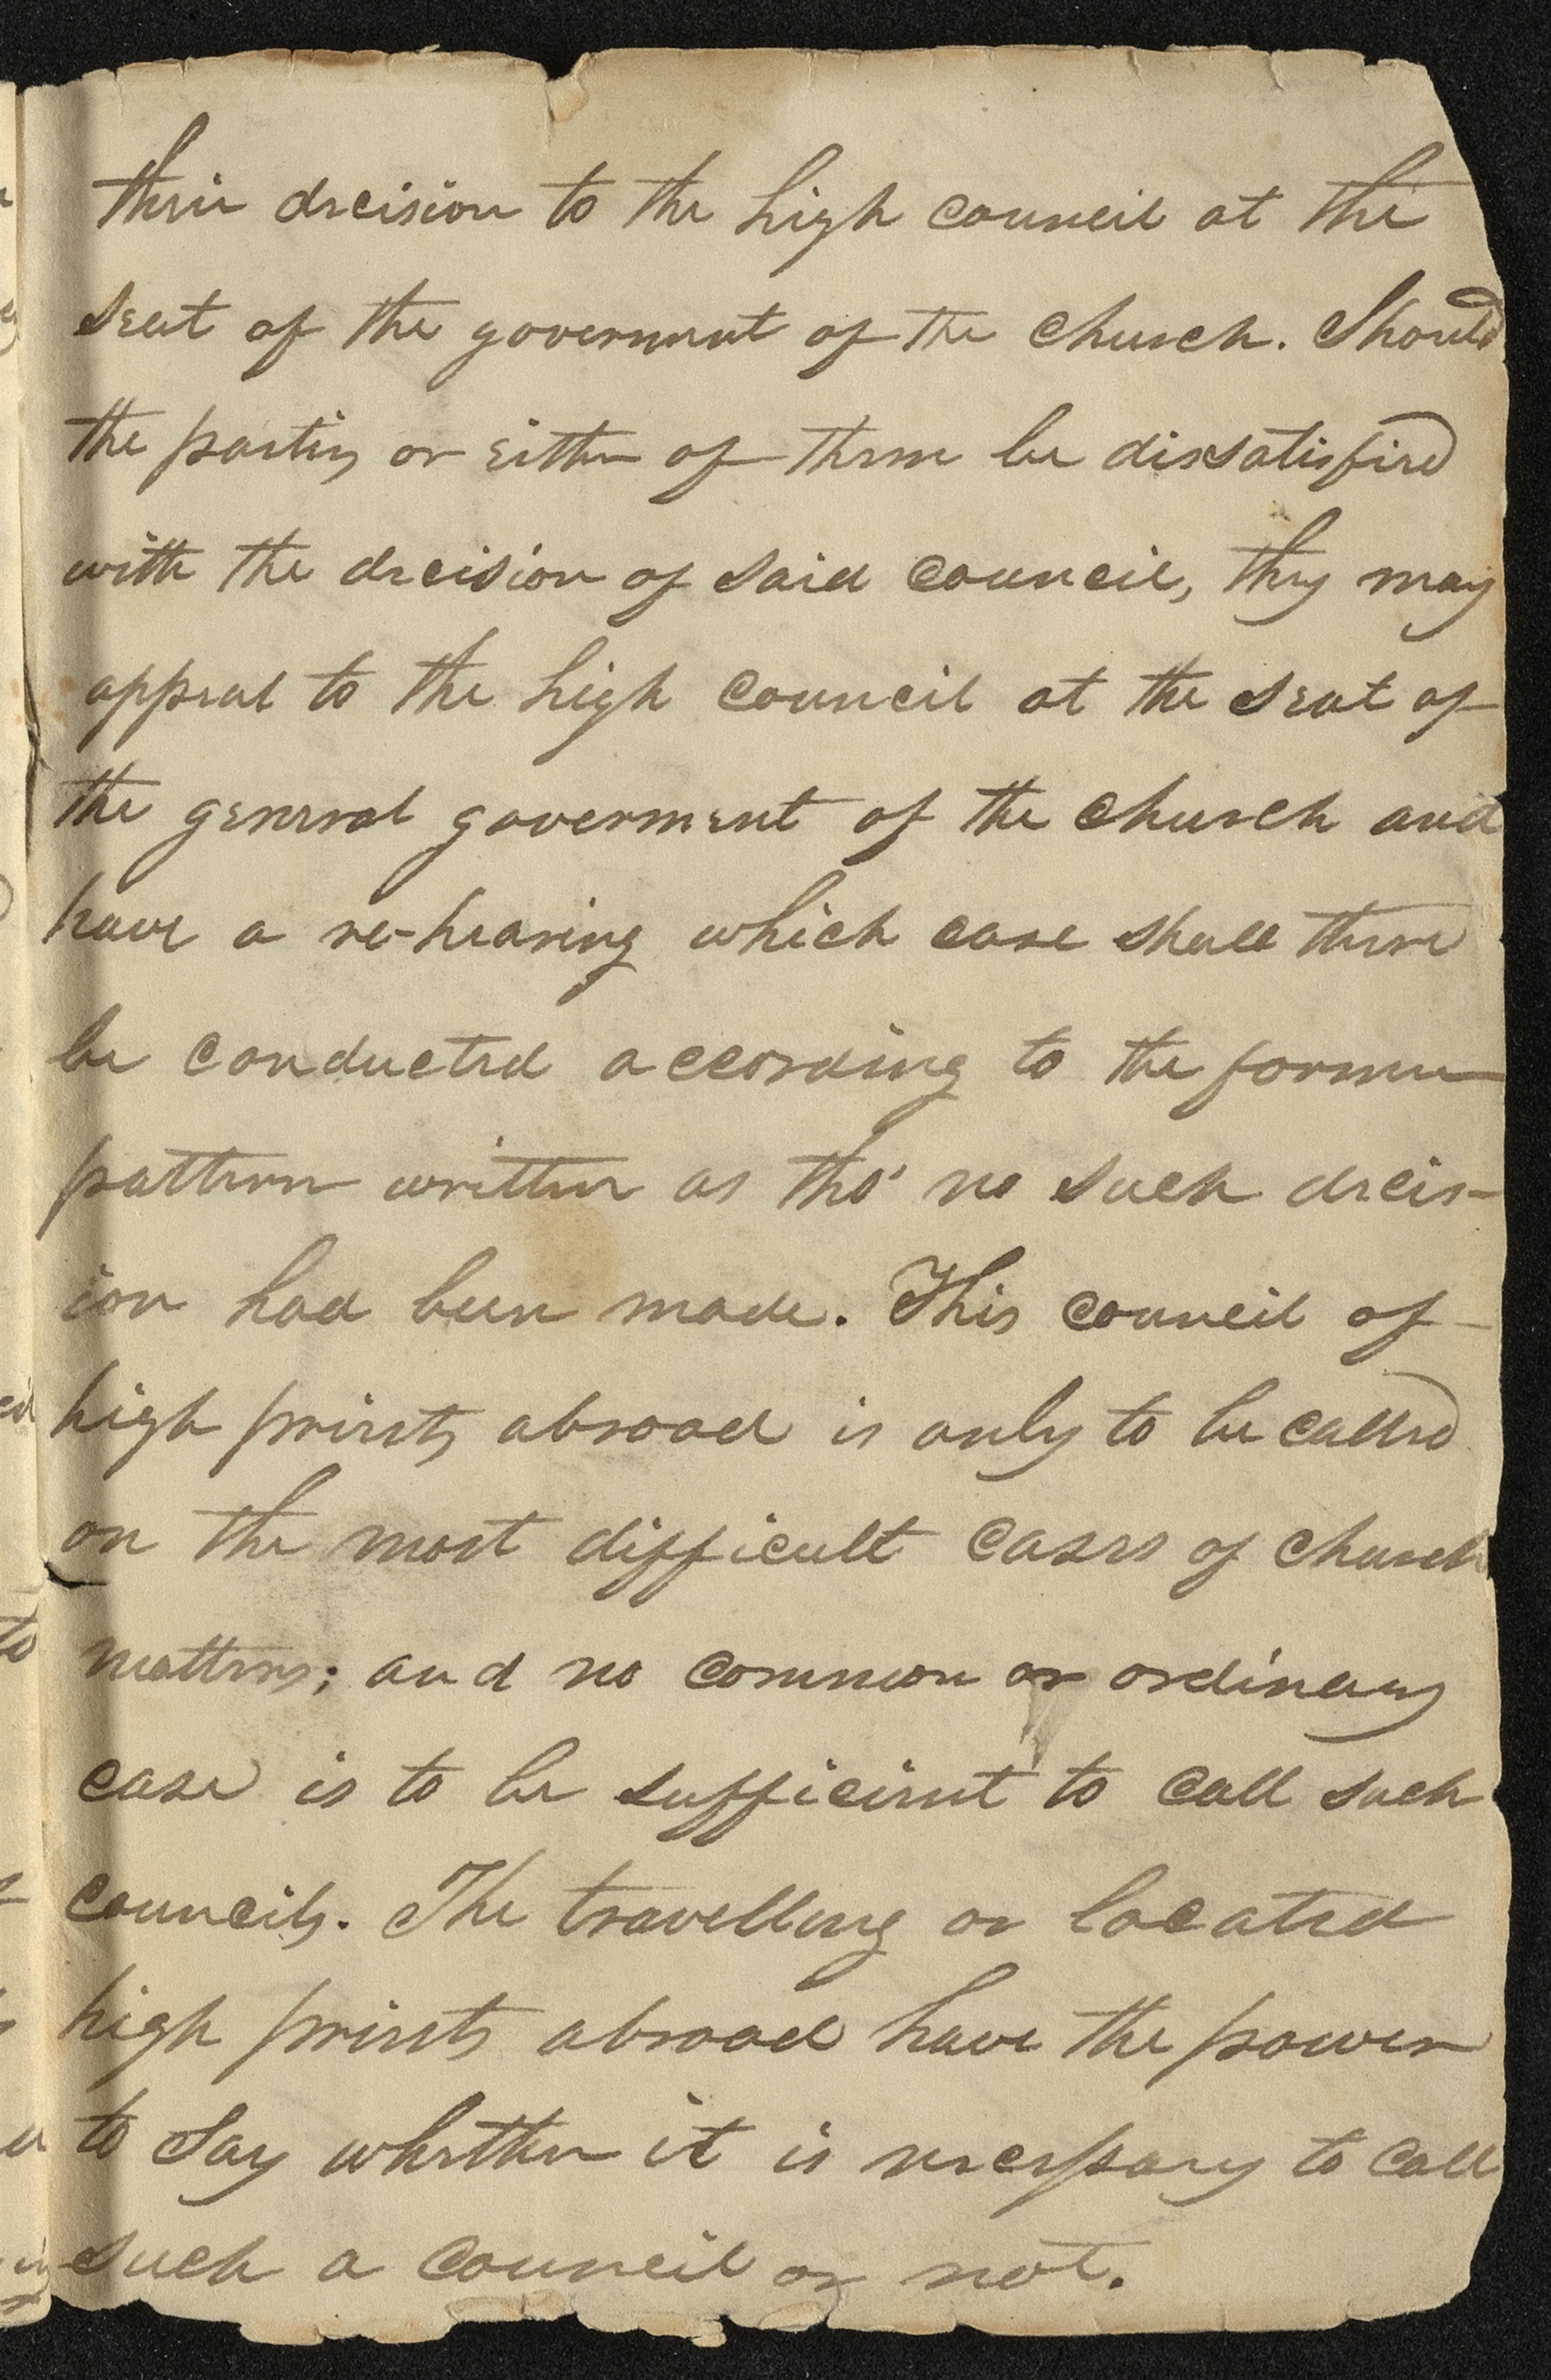 their decision to the high council at the
seat of the goverment of the church. Should
the parties or either of them be dissatisfied
with the decision of said council, they may
appeal to the high council at the seat of
the general goverment of the church and
have a re-hearing which case shall there
be conducted according to the former
pattern written as tho' no such decis-
ion had been made. This council of
high priests abroad is only to be called
on the most difficult cases of church
matters; and no common or ordinary
case is to be sufficient to call such
councils. The travelling or located
high priests abroad have the power
to say whether it is necessary to call
such a council or not.